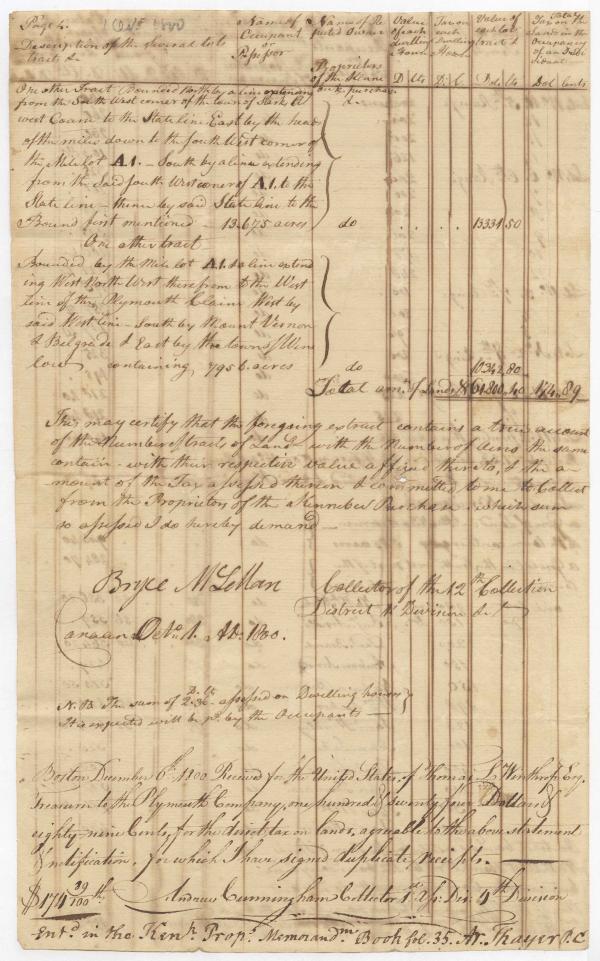 Page 4.
Description of the several lots
tracts &
Name of
Occupant
or
Possessor
Names of Reputed Owner
Proprietors
of the Kenne
beck purchase
Value
of each
dwelling
House
D. Cts
Tax on
each
dwelling
House
D. C.
Value of
each lot
tract &
Dol. Cts
Total
Tax on the
Lands in the
Occupancy
of an Indi
vidual
Dol Cents
One other Tract Bounded North by a line extending
from the South West corner of the town of Starks W
west Course to the State line East by the head
of the miles down to the South West corner of
the Mile lot A.1. - South by a line extending
from the Said South West corner of A.1. to the
State line - thence by said State line to the
Bound first mentioned - 13.675 acres do 13334.50
One other tract
Bounded by the Mile lot A.1. & a line extend
ing West North West therefrom to the West
line of the Plymouth Claim West by
said West line - South by Mount Vernon
& Belgrade & East by the towns Wins
low containing, 7956. acres do 10342.80
Total amt. of Lands & 61800.40 174.89
This may certify that the foregoing extract contains a true account
of the Number of tracts of Land with the Number of acres the same
contain - with their respective value affixed thereto, & the a-
mount of the Tax assessed thereon & committed to me to Collect
from the Proprietors of the Kennebec Purchase which sum
so assessed I do hereby demand -
Bryce McLellan Collector of the 12th Collection
District 4th Division &c
Canaan Octo. 1. AD. 1800.
N.B. The sum of D. Ct 2.36 assessed on Dwelling houses
It is expected will be pd. by the Occupants -
Boston December 6th. 1800 Received for the United States, of Thomas L Winthrop Esq.
Treasurer to the Plymouth Company, one hundred & seventy four Dollars &
eighty-nine Cents, for the direct tax on lands, agreable to the above statement
& notification, for which I have signed duplicate receipts. -
$174 89/100ths Andrew Cunningham Collector 1st Dis. 4th Division
Entd. in the Kenk. Props. Memorandm. Book fol. 35. Ar. Thayer P.C